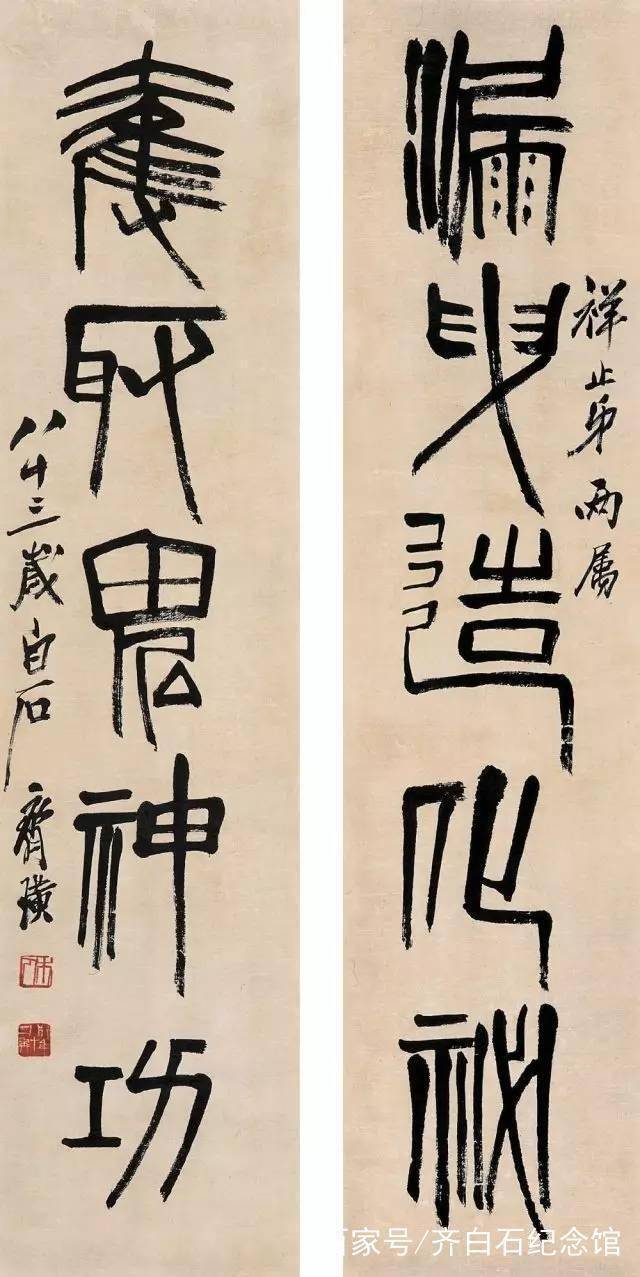 漏曳造化祕
祥止弟两属
奪取鬼神功
八十三歲白石齊璜
百家号/齐白石纪念馆